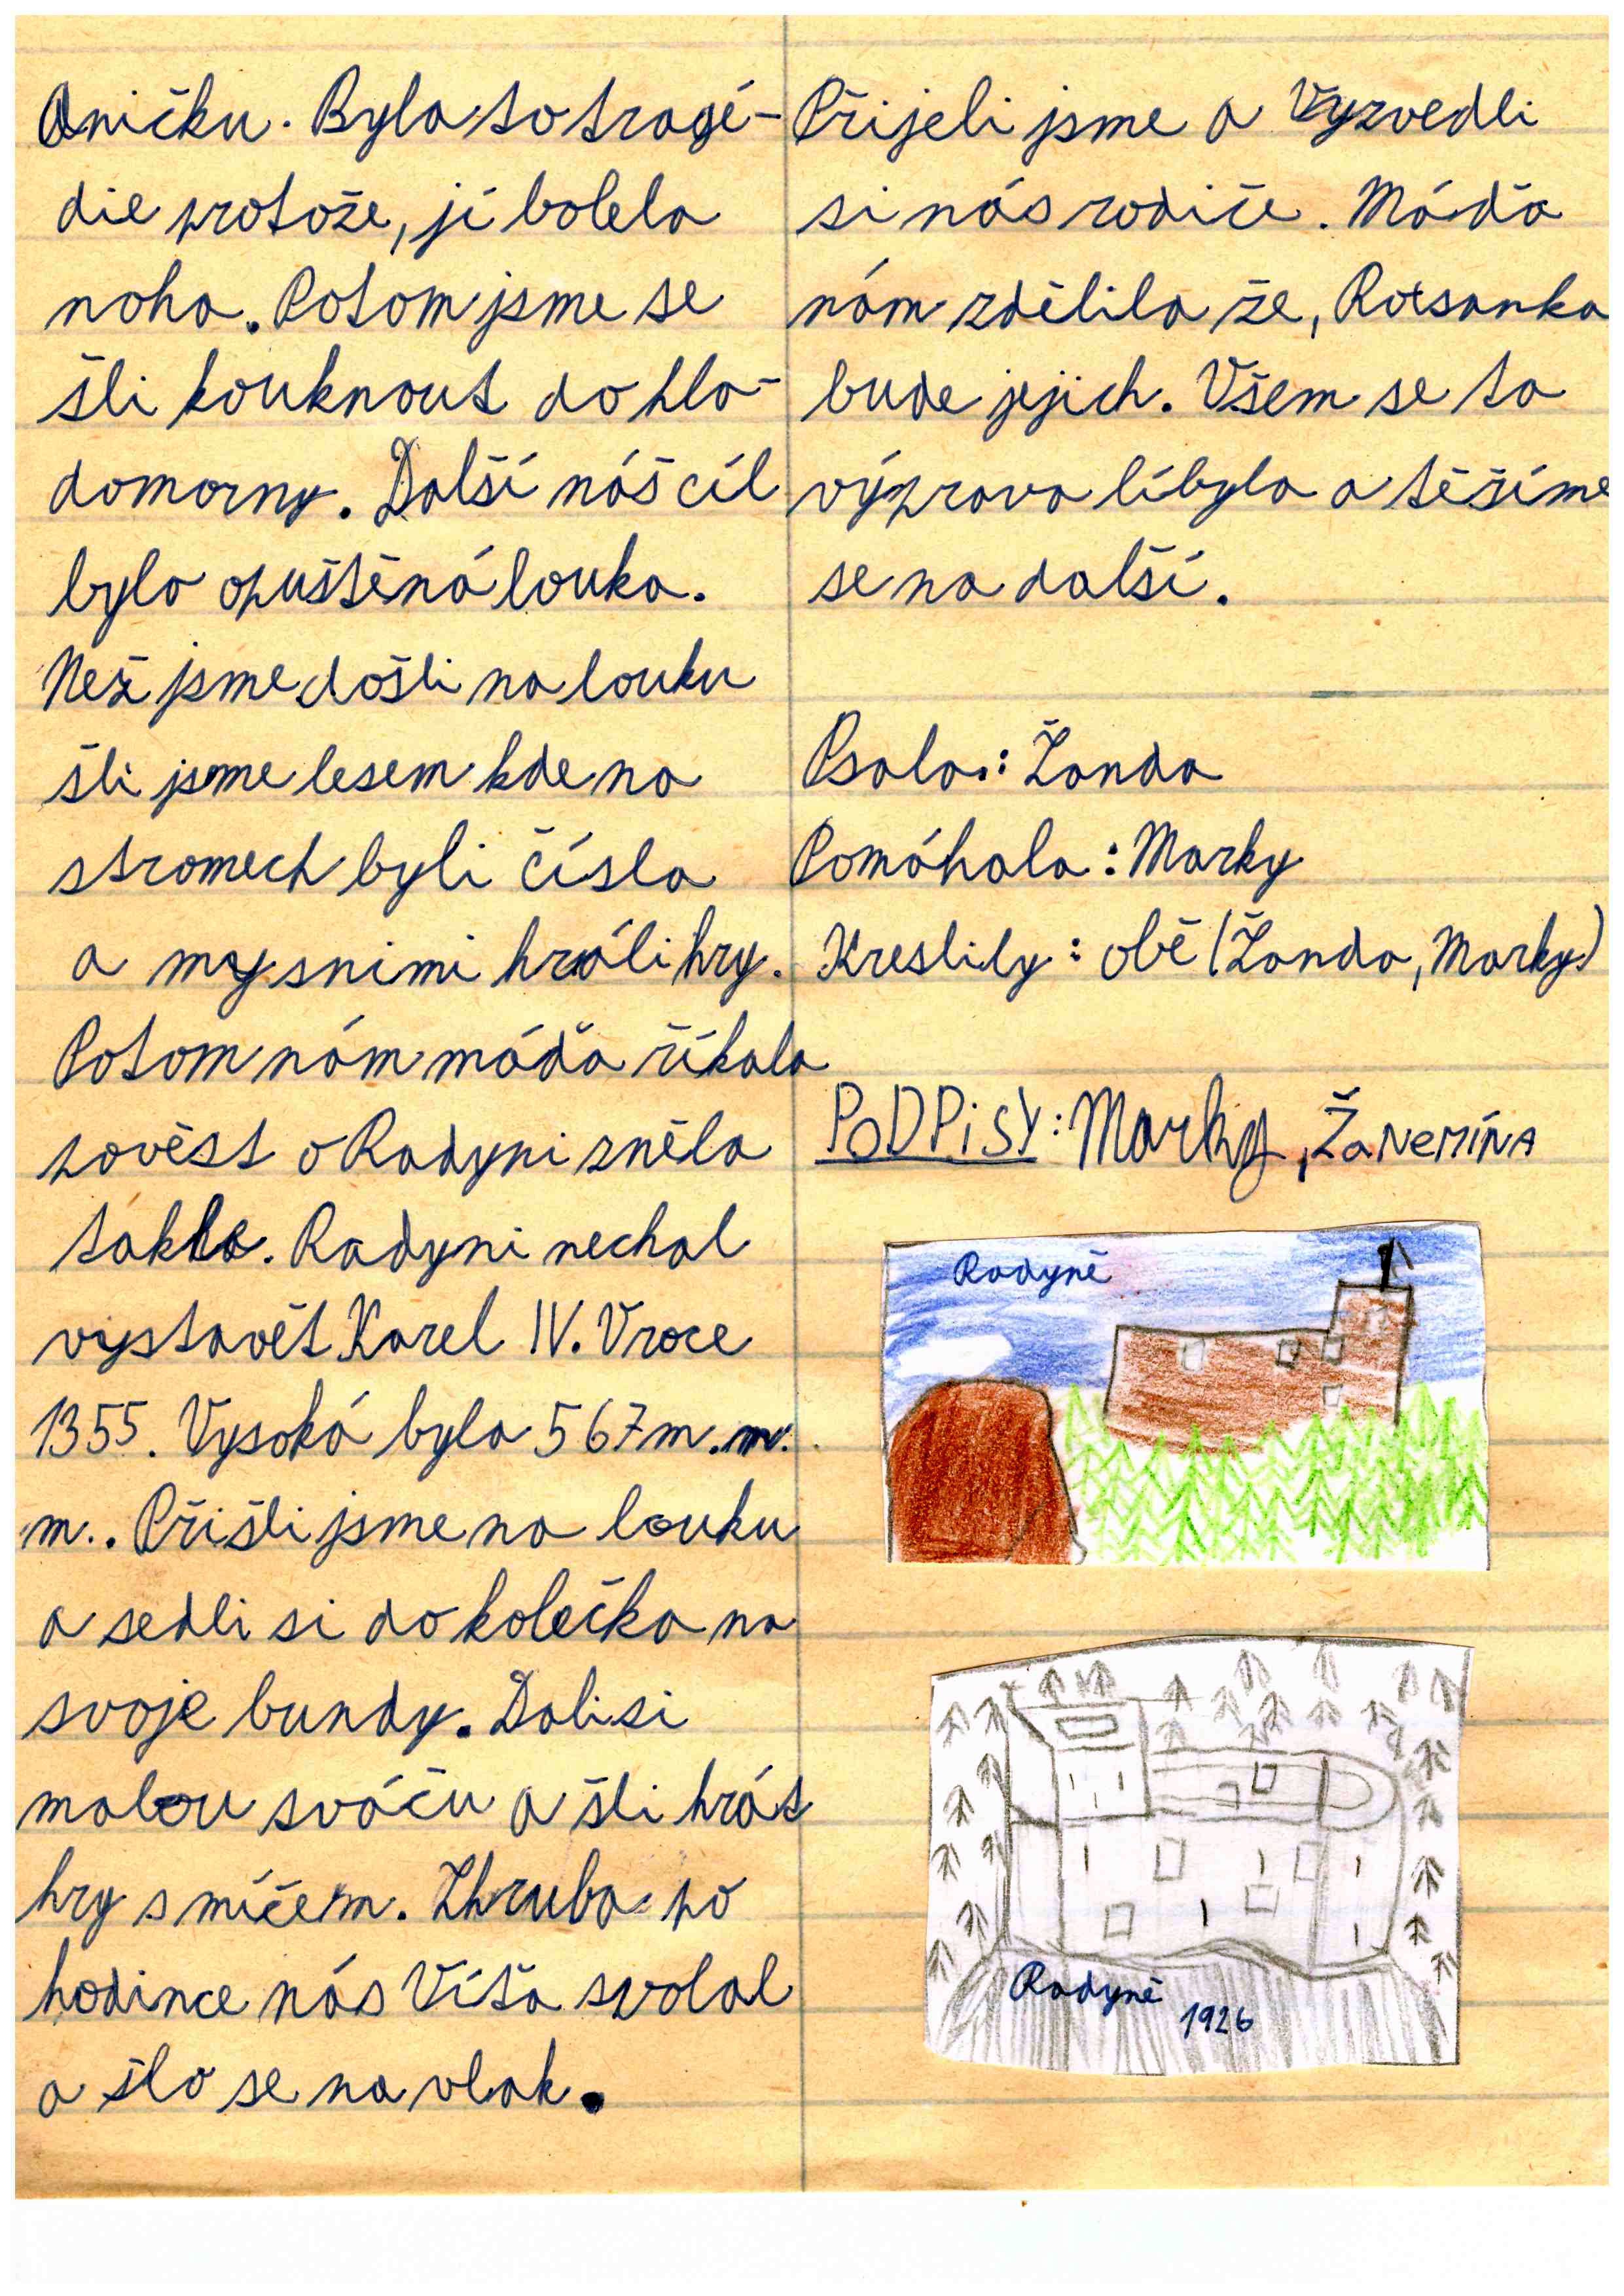 Aničku. Byla to tragé-
die protože, jí bolela
noha. Potom jsme se
šli kouknout do hla-
domorny. Další náš cíl
byla opuštěná louka.
Než jsme došli na louku
šli jsme lesem kde na
stromech byli čísla
a my snimi hráli hry.
Potom nám máďa říkala
pověst o Radyni zněla
takhle. Radyni nechal
vystavět Karel IV. V roce
1355. Vysoká byla 567 m.n.
m.. Přišli jsme na louku
a sedli si do kolečka na
svoje bundy. Dali si
malou sváču a šli hrát
hry s míčem. Zhruba po
hodince nás Víťa svolal
a šlo se na vlak.
Přijeli jsme a Vyzvedli
si nás rodiče. Máďa
nám zdělila že, Rotsanka
bude jejich. Všem se ta
výprava líbyla a těšíme
se na další.
Psala: Žanda
Pomáhala: Marky
Kreslily: obě (Žanda, Marky)
PODPiSY: Marky, ŽaNeMÍNA
Radyně
Radyně
1926